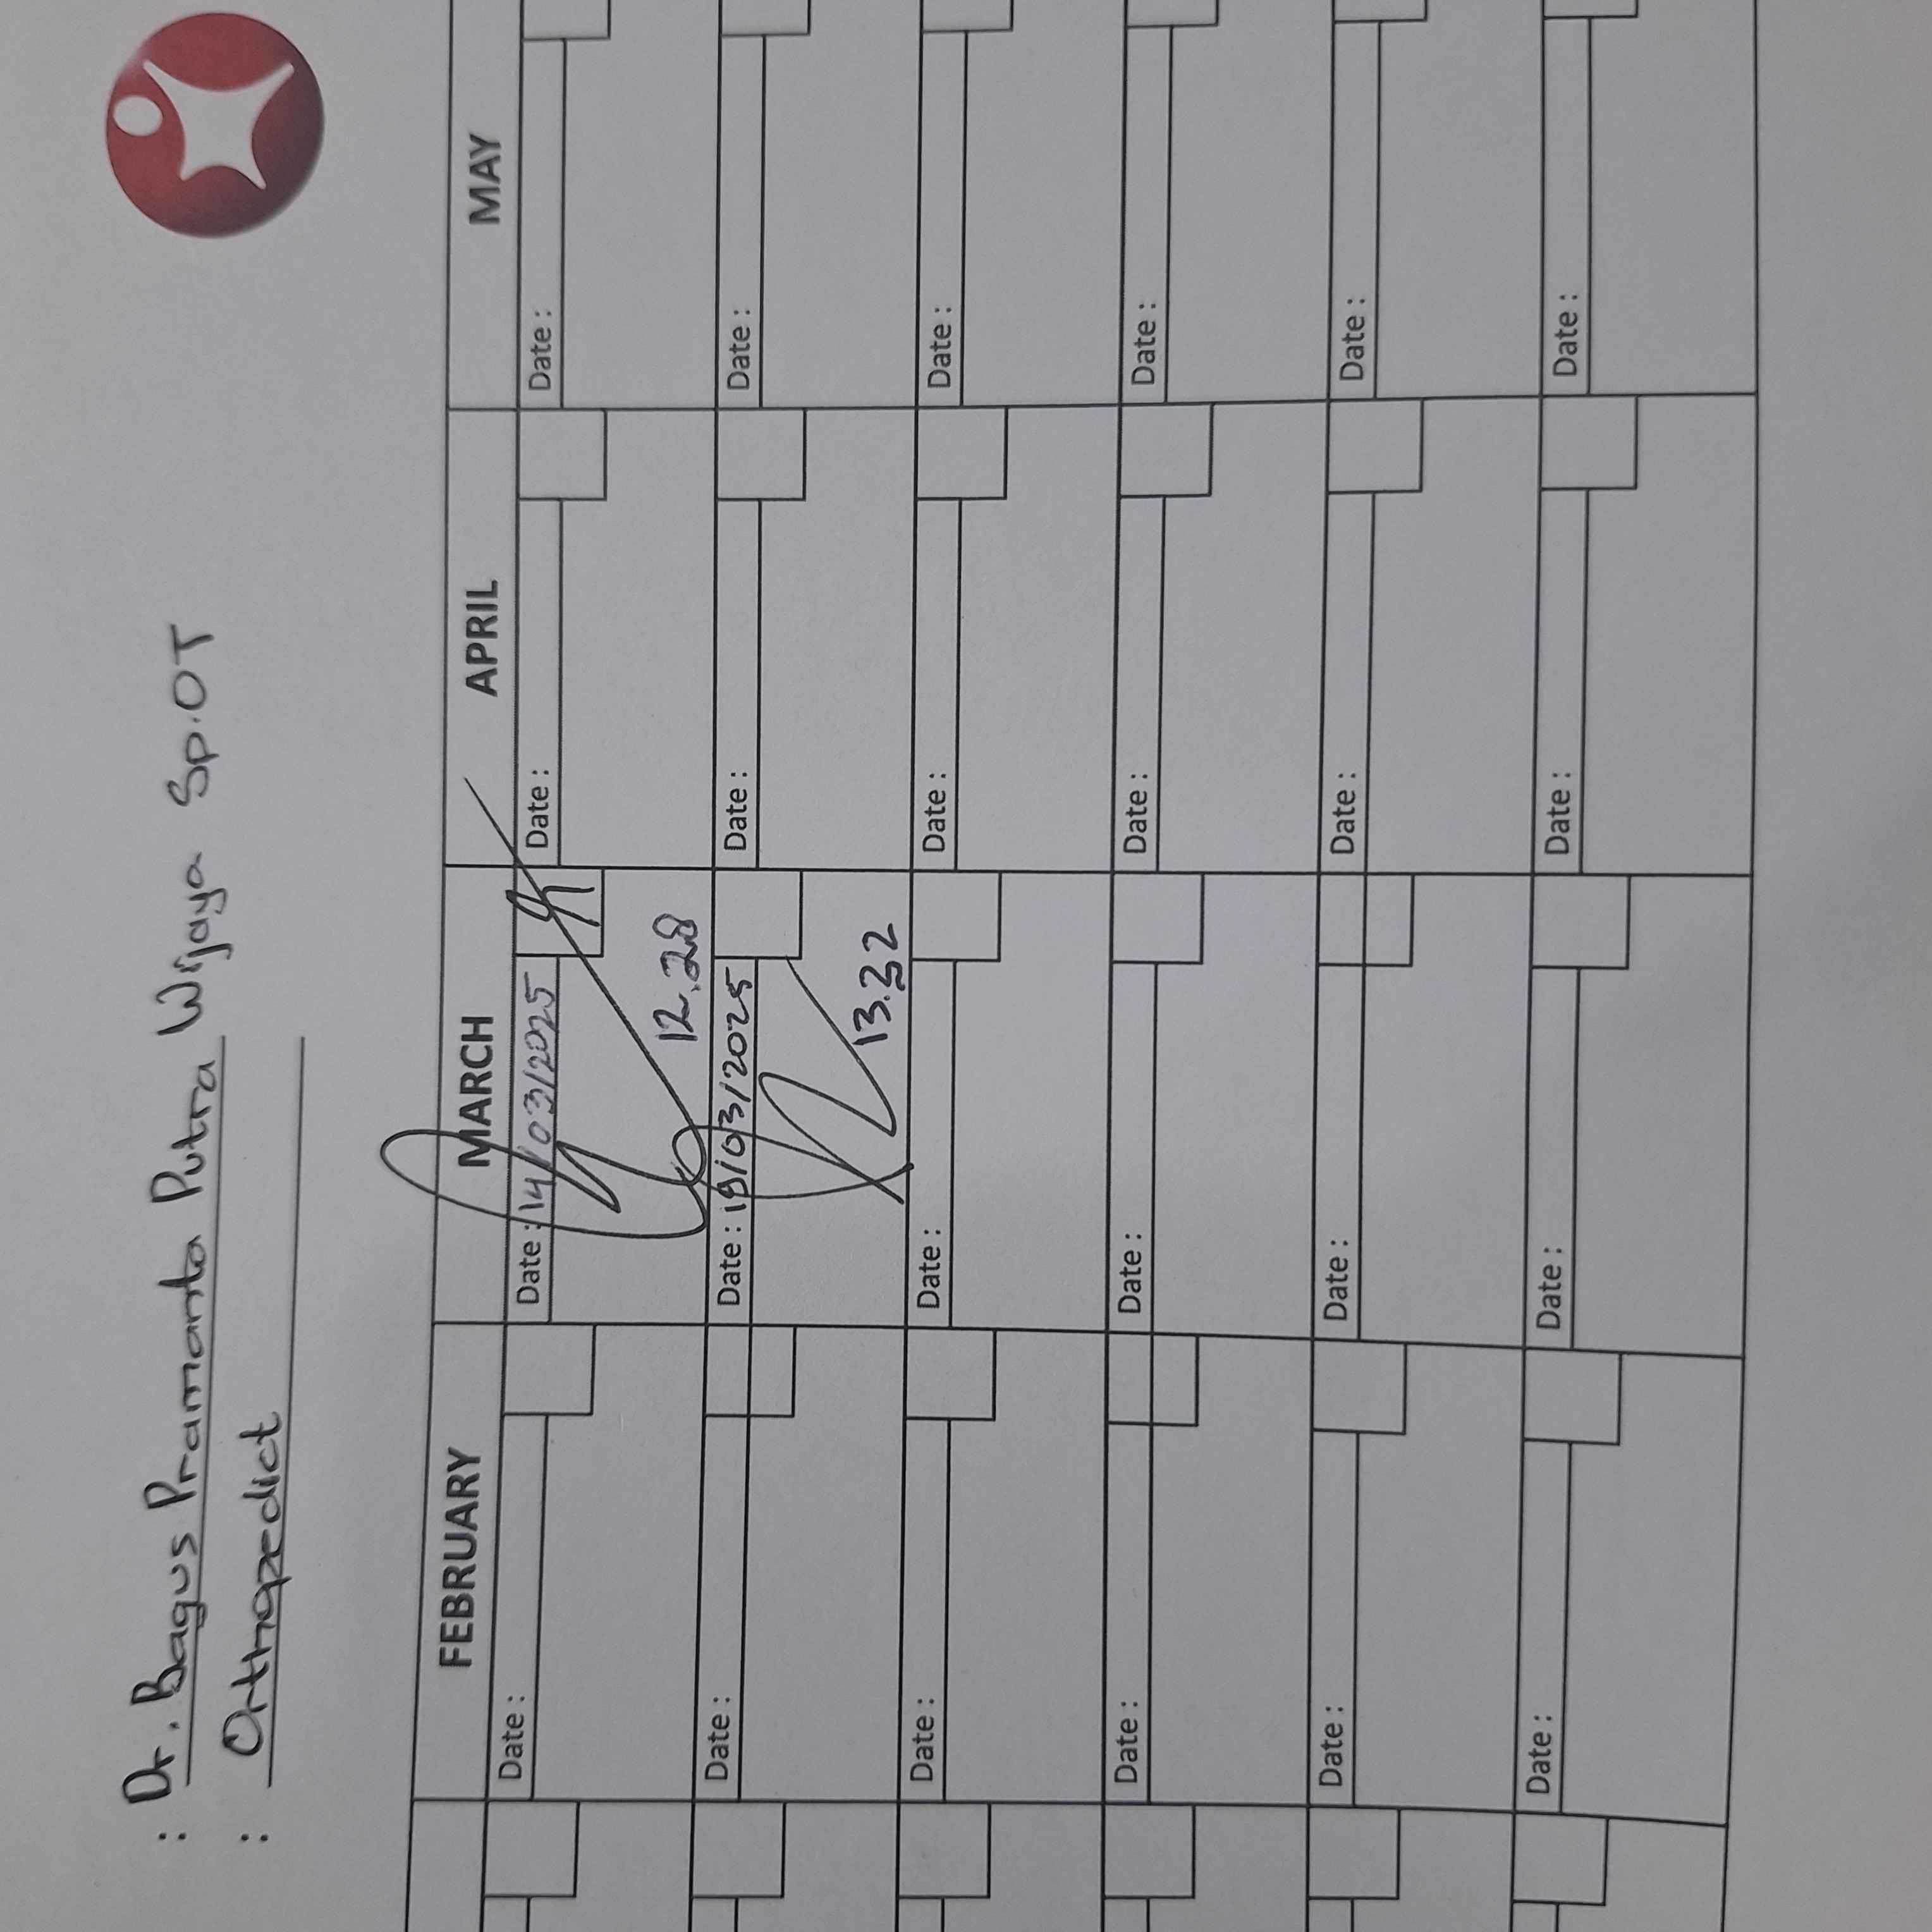 : Dr. Bagus Pramanta Putra Wijaya Sp.OT
: Orthopedict
FEBRUARY MARCH APRIL MAY
Date : Date : 14/03/2025 Date : Date :
12.28
Date : Date : 19/03/2025 Date : Date :
13.32
Date : Date : Date : Date :
Date : Date : Date : Date :
Date : Date : Date : Date :
Date : Date : Date : Date :